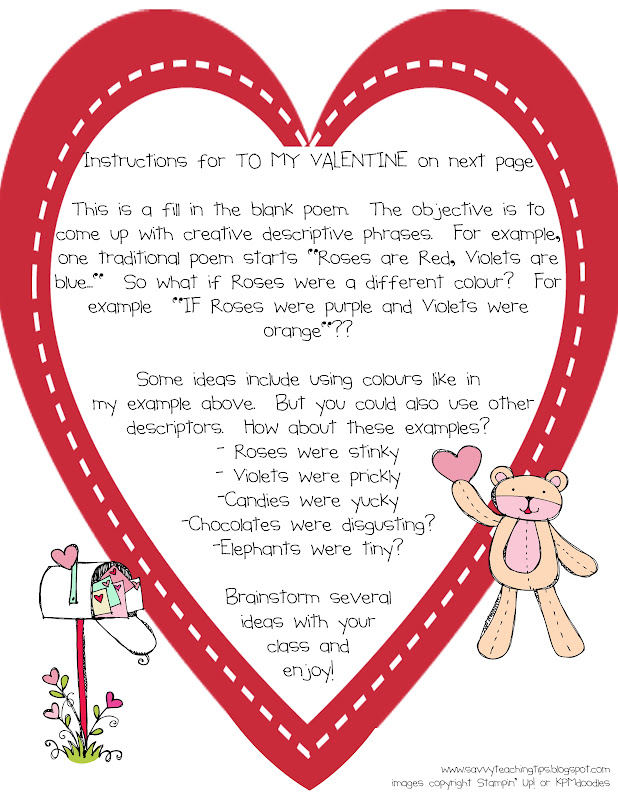 Instructions for TO MY VALENTINE on next page
This is a fill in the blank poem. The objective is to
come up with creative descriptive phrases. For example,
one traditional poem starts "Roses are Red, Violets are
blue..." So what if Roses were a different colour? For
example "IF Roses were purple and Violets were
orange"??
Some ideas include using colours like in
my example above. But you could also use other
descriptors. How about these examples?
- Roses were stinky
- Violets were prickly
-Candies were yucky
-Chocolates were disgusting?
-Elephants were tiny?
Brainstorm several
ideas with your
class and
enjoy!
www.savvyteachingtips.blogspot.com
images copyright Stampin' Up! or KPMdoodles